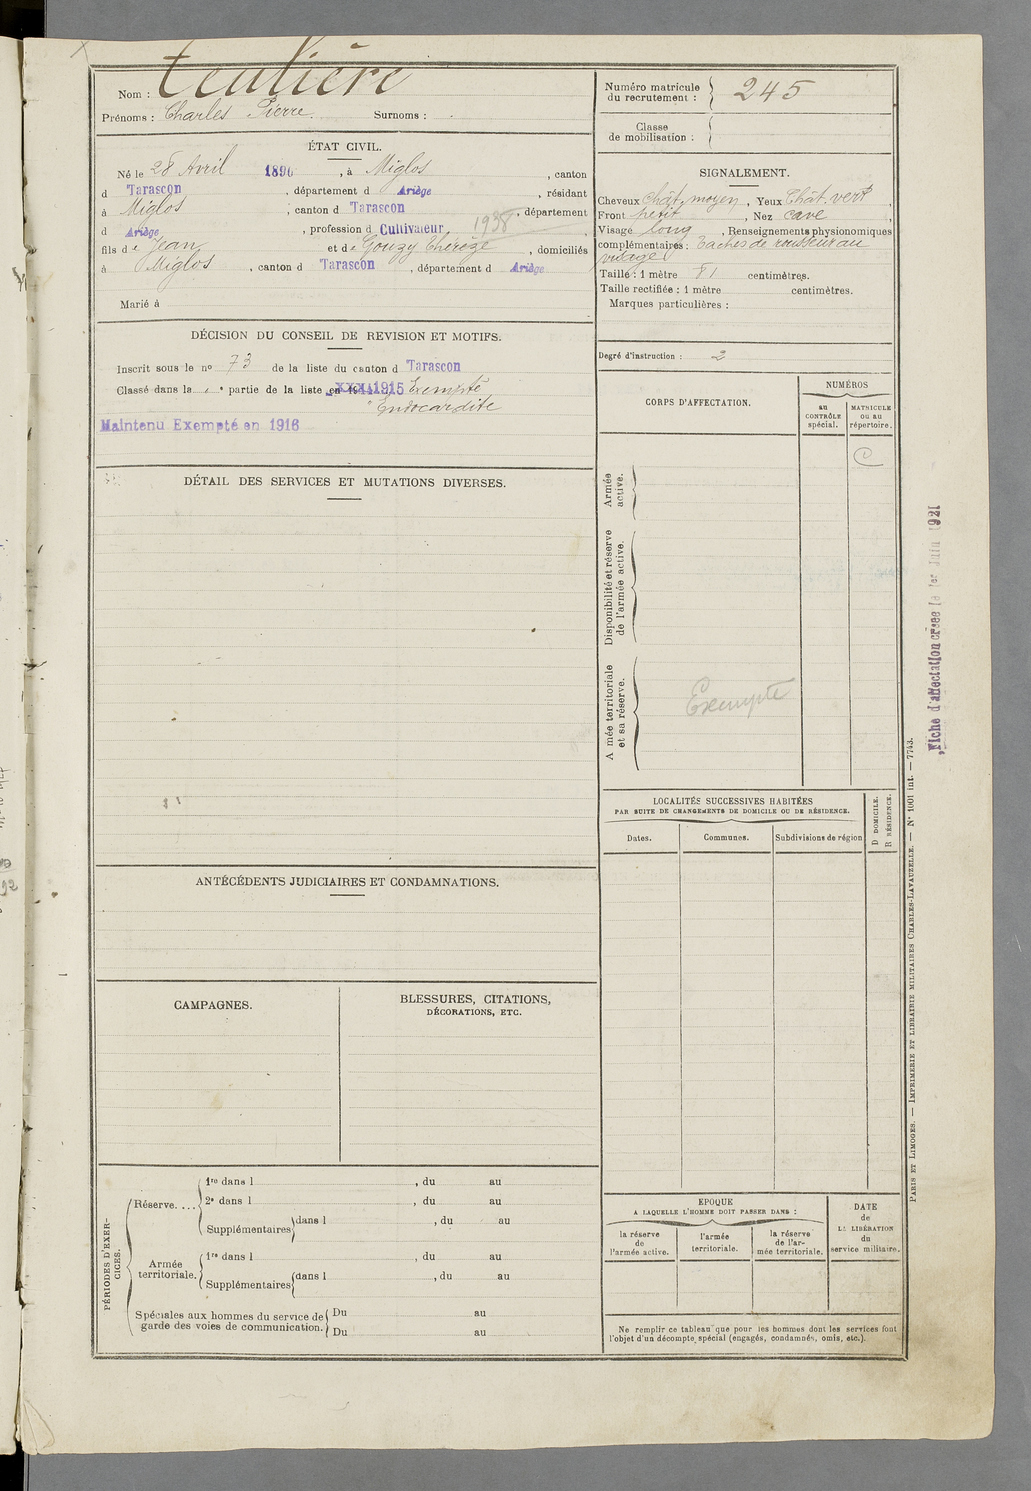 Nom : Teulière
Prénoms : Charles Pierre. Surnoms :
Numéro matricule du recrutement : 245
Classe de mobilisation :
ÉTAT CIVIL.
Né le 28 Avril 1896, à Miglos, canton
d Tarascon, département d Ariège, résidant
à Miglos, canton d Tarascon, département
d Ariège, profession d Cultivateur, 1938
fils de Jean et de Gouzy Thérèze, domiciliés
à Miglos, canton d Tarascon, département d Ariège
Marié à
SIGNALEMENT.
Cheveux chât. moyen, Yeux Chât. vert,
Front petit, Nez cave
Visage long, Renseignements physionomiques
complémentaires : Taches de rousseur au
visage
Taille : 1 mètre 81 centimètres.
Taille rectifiée : 1 mètre centimètres.
Marques particulières :
Degré d'instruction : 2
DÉCISION DU CONSEIL DE REVISION ET MOTIFS.
Inscrit sous le n° 73 de la liste du canton d Tarascon
Classé dans la e partie de la liste en 1915 Exempté
Endocardite
Maintenu Exempté en 1916
CORPS D'AFFECTATION.
NUMÉROS
au CONTRÔLE spécial.
MATRICULE OU AU répertoire.
C
Armée active.
Disponibilité et réserve de l'armée active.
A mée territoriale et sa réserve.
Exempté
DÉTAIL DES SERVICES ET MUTATIONS DIVERSES.
LOCALITÉS SUCCESSIVES HABITÉES
PAR SUITE DE CHANGEMENTS DE DOMICILE OU DE RÉSIDENCE.
D DOMICILE.
R RÉSIDENCE.
Dates. Communes. Subdivisions de région
ANTÉCÉDENTS JUDICIAIRES ET CONDAMNATIONS.
CAMPAGNES.
BLESSURES, CITATIONS,
DÉCORATIONS, ETC.
PÉRIODES D'EXERCICES.
Réserve....
1re dans l , du au
2e dans l , du au
Supplémentaires dans l , du au
Armée territoriale.
1re dans l , du au
Supplémentaires dans l , du au
Spéciales aux hommes du service de garde des voies de communication.
Du au
Du au
EPOQUE
A LAQUELLE L'HOMME DOIT PASSER DANS :
la réserve de l'armée active.
l'armée territoriale.
la réserve de l'armée territoriale.
DATE de LA LIBÉRATION du service militaire.
Ne remplir ce tableau que pour les hommes dont les services font
l'objet d'un décompte spécial (engagés, condamnés, omis, etc.).
PARIS ET LIMOGES. — IMPRIMERIE ET LIBRAIRIE MILITAIRES CHARLES-LAVAUZELLE. — N° 1001 int. — 7743.
Fiche d'affectation créée le 1er Juin 1921